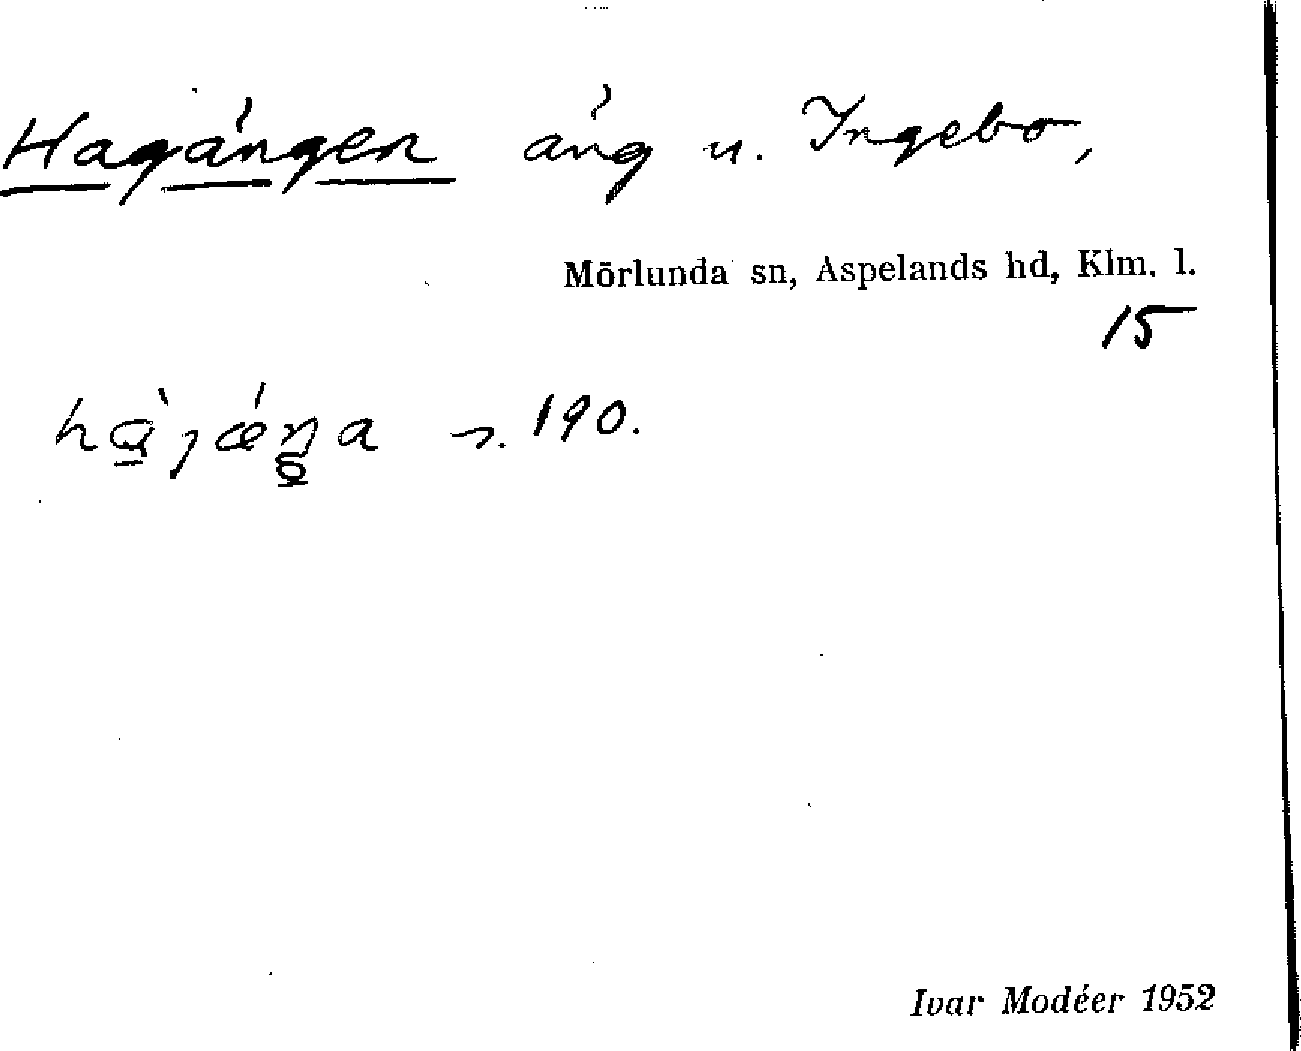 Hagängen äng u. Ingebo,
Mörlunda sn, Aspelands hd, Klm. l.
15
s. 190.
Ivar Modéer 1952